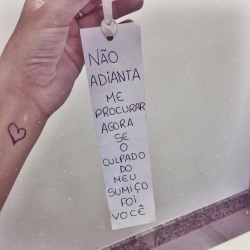 NÃO
ADIANTA
ME
PROCURAR
AGORA
SE
O
CULPADO
DO
MEU
SUMIÇO
FOI
VOCÊ